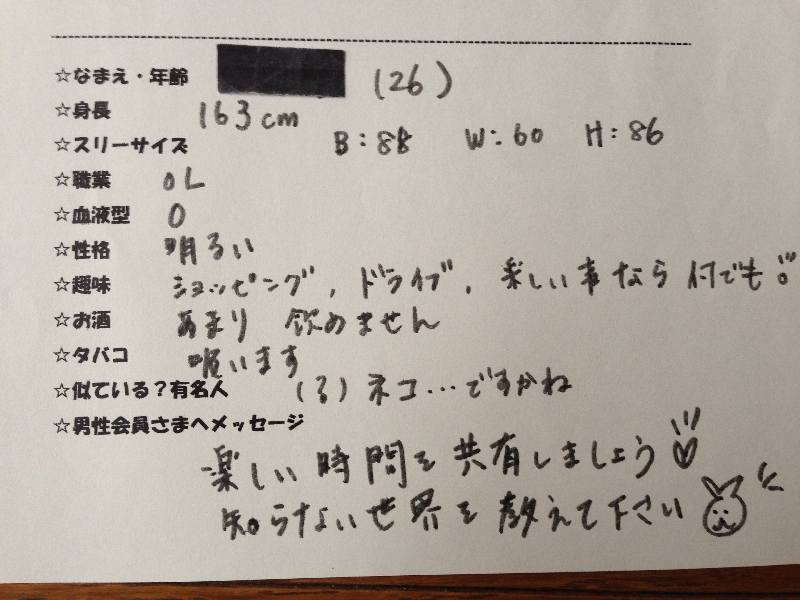 ☆なまえ・年齢 (26)
☆身長 163cm
☆スリーサイズ B:88 W:60 H:86
☆職業 OL
☆血液型 O
☆性格 明るい
☆趣味 ショッピング、ドライブ、楽しい事なら何でも!!
☆お酒 あまり 飲めません
☆タバコ 吸います
☆似ている?有名人 (る)ネコ…ですかね
☆男性会員さまへメッセージ
楽しい時間を共有しましょう♡
知らない世界を教えて下さい